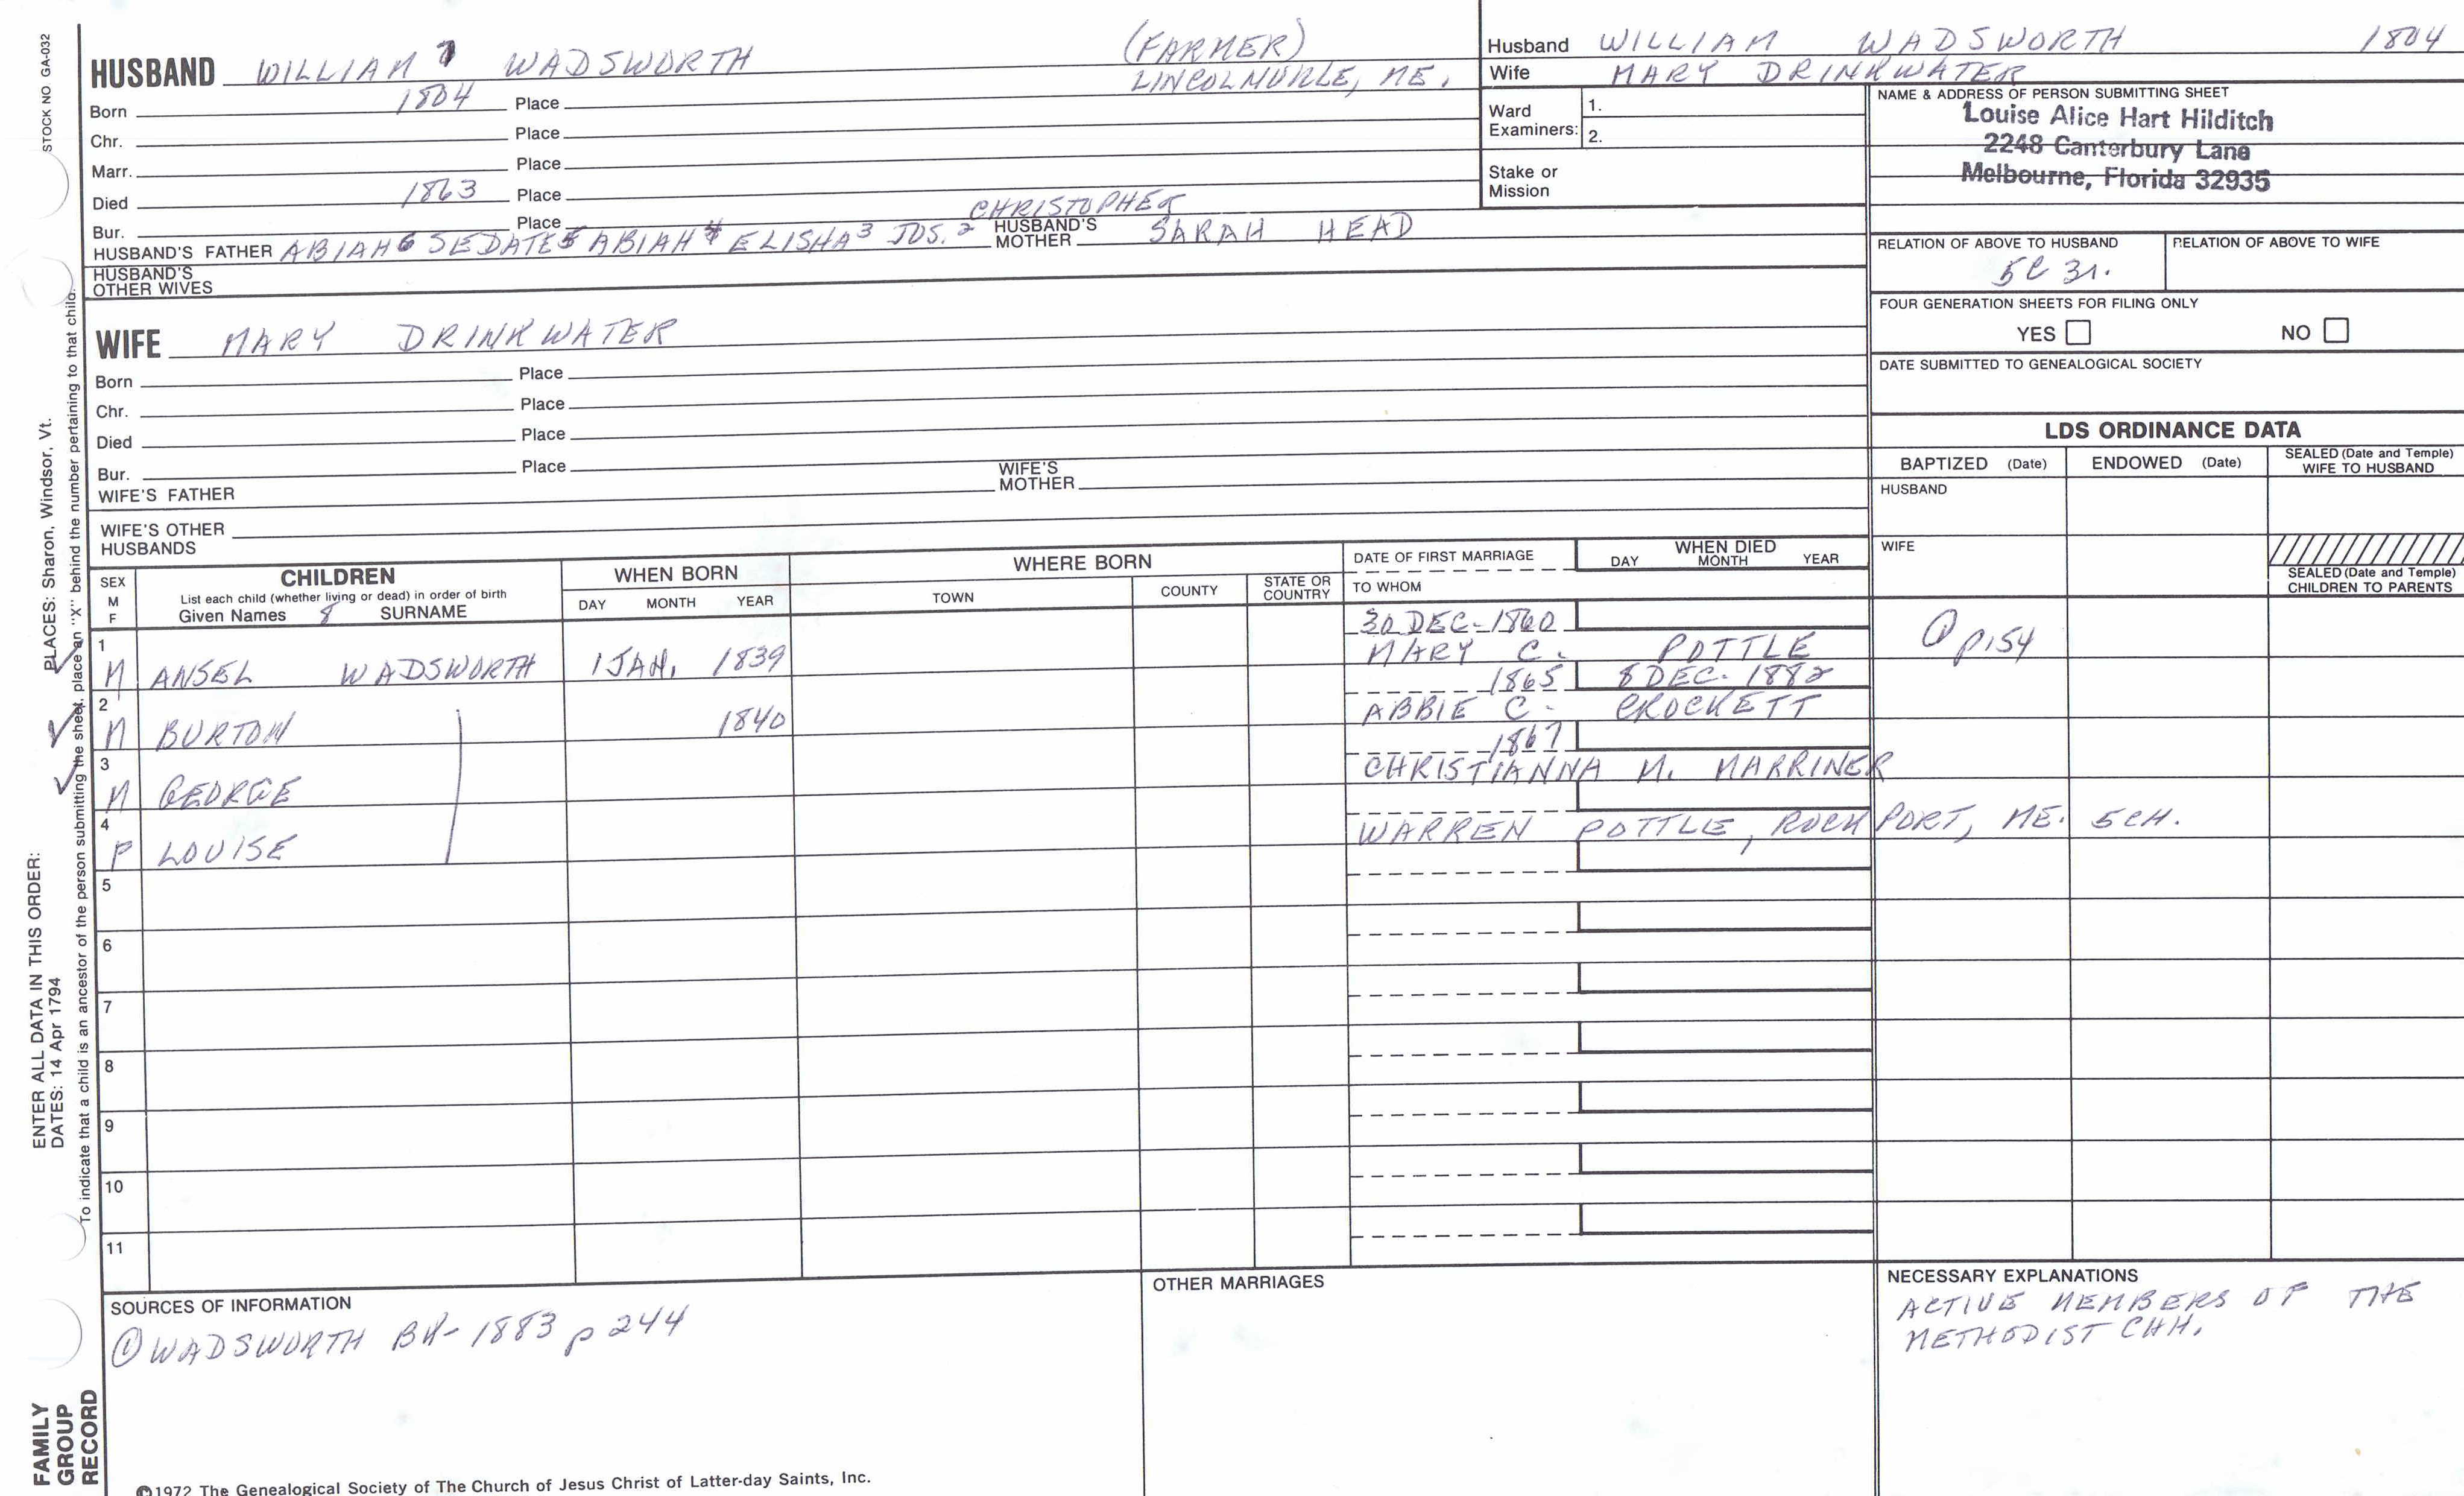 STOCK NO GA-032
HUSBAND WILLIAM 7 WADSWORTH (FARMER)
LINCOLNVILLE, ME.
Born 1804 Place
Chr. Place
Marr. Place
Died 1863 Place
Bur. Place
CHRISTOPHER
HUSBAND'S FATHER ABIAH 6 SEDATE 5 ABIAH 4 ELISHA 3 JOS. 2 HUSBAND'S MOTHER SARAH HEAD
HUSBAND'S OTHER WIVES
WIFE MARY DRINKWATER
Born Place
Chr. Place
Died Place
Bur. Place
WIFE'S FATHER WIFE'S MOTHER
WIFE'S OTHER HUSBANDS
Husband WILLIAM WADSWORTH 1804
Wife MARY DRINKWATER
Ward Examiners: 1.
2.
Stake or Mission
NAME & ADDRESS OF PERSON SUBMITTING SHEET
Louise Alice Hart Hilditch
2248 Canterbury Lane
Melbourne, Florida 32935
RELATION OF ABOVE TO HUSBAND RELATION OF ABOVE TO WIFE
5C 3r.
FOUR GENERATION SHEETS FOR FILING ONLY
YES NO
DATE SUBMITTED TO GENEALOGICAL SOCIETY
LDS ORDINANCE DATA
BAPTIZED (Date) ENDOWED (Date) SEALED (Date and Temple) WIFE TO HUSBAND
HUSBAND
WIFE
SEALED (Date and Temple) CHILDREN TO PARENTS
SEX M F
CHILDREN
List each child (whether living or dead) in order of birth
Given Names 8 SURNAME
WHEN BORN
DAY MONTH YEAR
WHERE BORN
TOWN COUNTY STATE OR COUNTRY
DATE OF FIRST MARRIAGE
TO WHOM
WHEN DIED
DAY MONTH YEAR
1 30 DEC. 1860
M ANSEL WADSWORTH 1 JAN. 1839 MARY C. POTTLE ① p154
2 1865 8 DEC. 1882
M BURTON 1840 ABBIE C. CROCKETT
3 1867
M GEORGE CHRISTIANNA M. MARRINER
4
F LOUISE WARREN POTTLE, ROCKPORT, ME. 5CH.
5
6
7
8
9
10
11
SOURCES OF INFORMATION
① WADSWORTH BK- 1883 p 244
OTHER MARRIAGES
NECESSARY EXPLANATIONS
ACTIVE MEMBERS OF THE
METHODIST CHH.
©1972 The Genealogical Society of The Church of Jesus Christ of Latter-day Saints, Inc.
FAMILY
GROUP
RECORD
ENTER ALL DATA IN THIS ORDER:
DATES: 14 Apr 1794
PLACES: Sharon, Windsor, Vt.
To indicate that a child is an ancestor of the person submitting the sheet, place an "X" behind the number pertaining to that child.